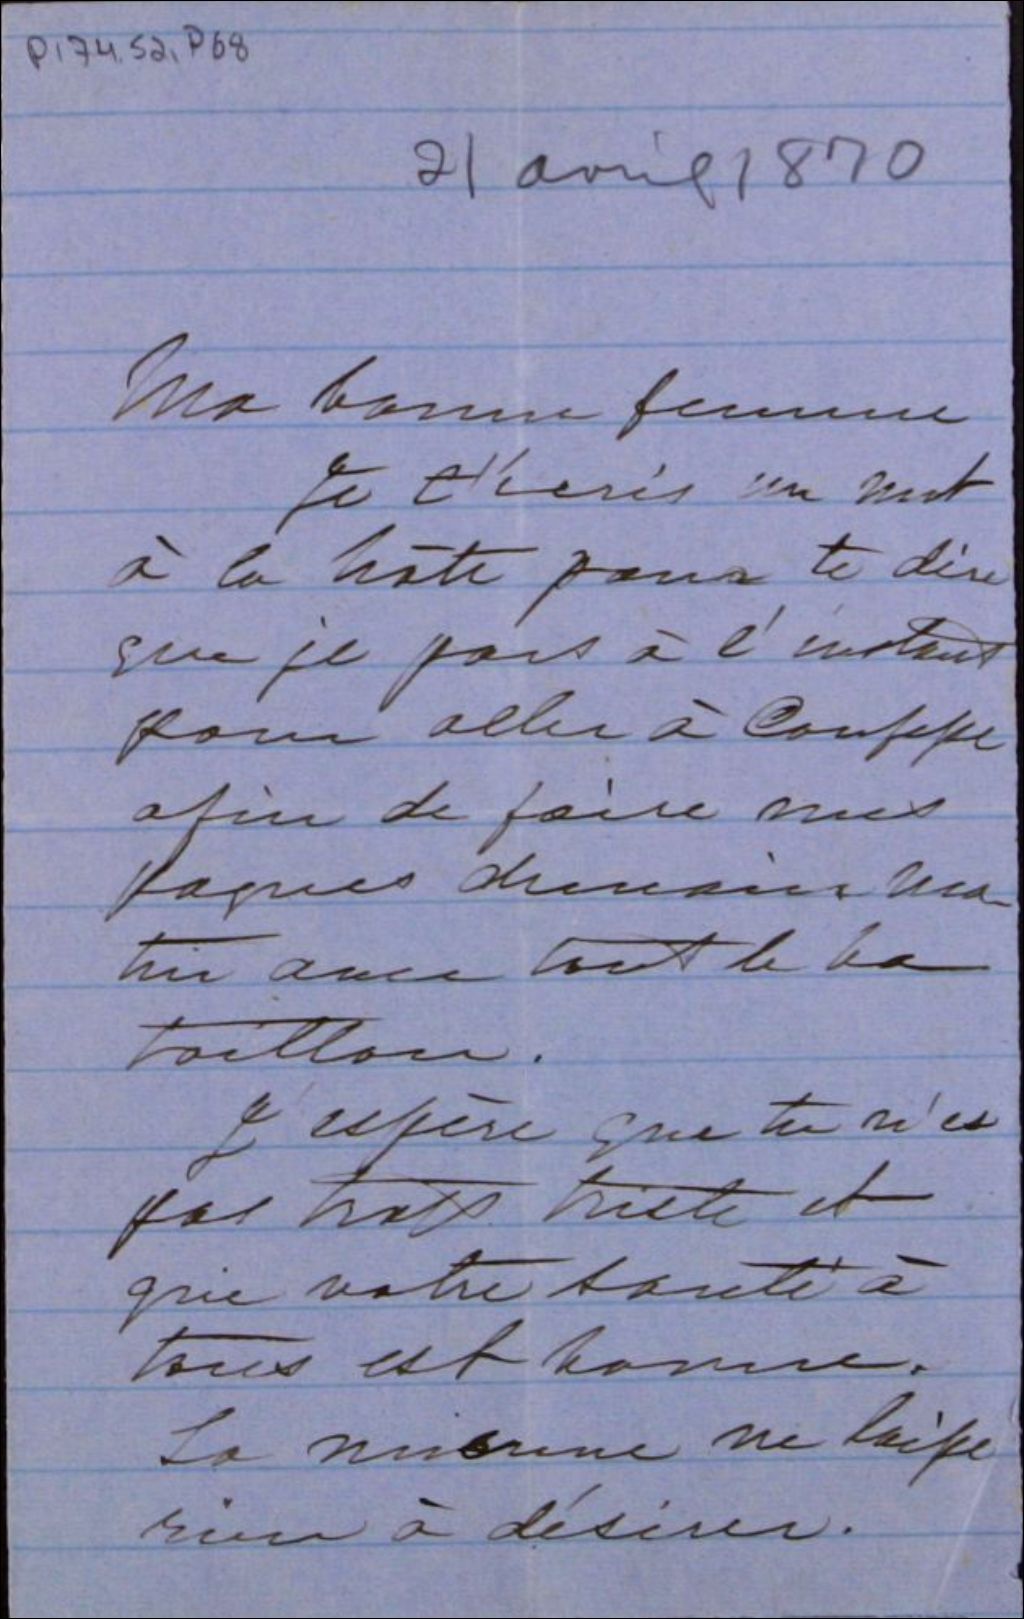 P174.S2,P68
21 avril 1870
Ma bonne femme
Je t'écris un mot
à la hâte pour te dire
que je pars à l'instant
pour aller à
afin de faire mes
paques demain ma
tin avec tout le ba
taillon.
J'espère que tu n'es
pas trop triste et
que votre santé à
tous est bonne.
La mienne ne laisse
rien à désirer.